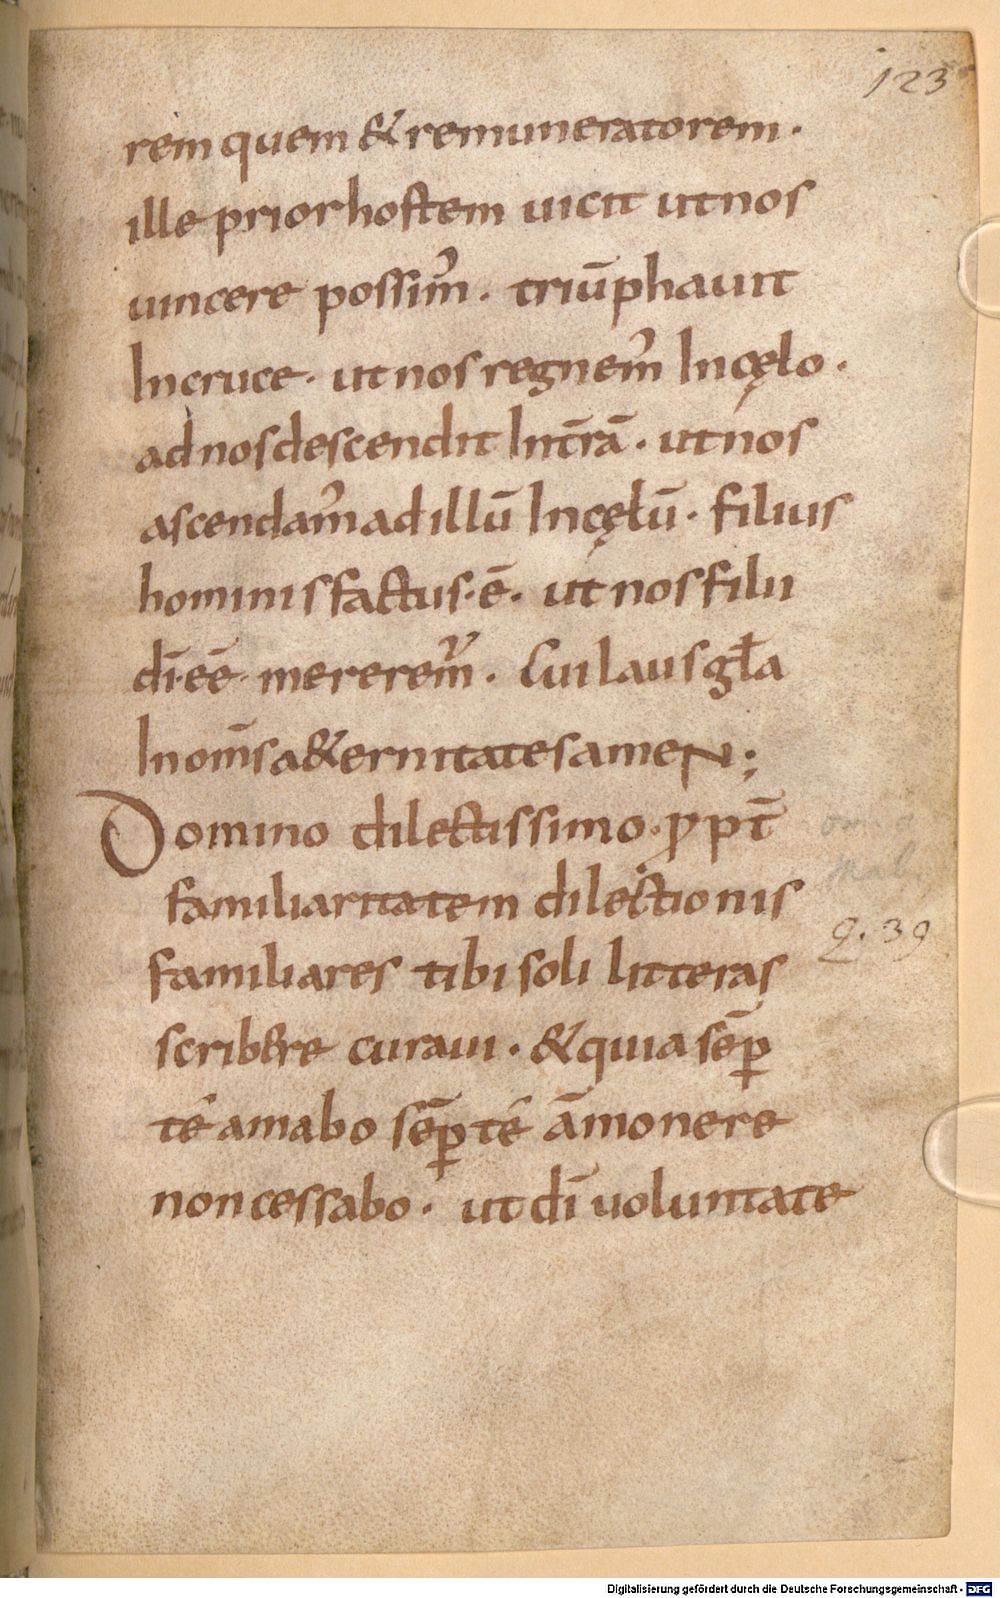 123
rem quem & remuneratorem .
ille prior hostem uicit ut nos
uincere possim᾿ . triūphauit
Incruce . ut nos regnem᾿ Incęlo .
ad nos descendit Int̄rā . ut nos
ascendam᾿ ad illū Incęlū . filius
hominis factus . ē . ut nos filii
dī . eē . mererem᾿ . Cui laus gl̄a
Inom̄s a&ernitates ameN ;
Domino dilectissimo . ꝓpt̄
familiaritatem dilectionis
Q. 39
familiares tibi soli litteras
scribere curaui . & quia sēp
té amabo sēp té āmonere
non cessabo . ut dī uoluntate
Digitalisierung gefördert durch die Deutsche Forschungsgemeinschaft - DFG